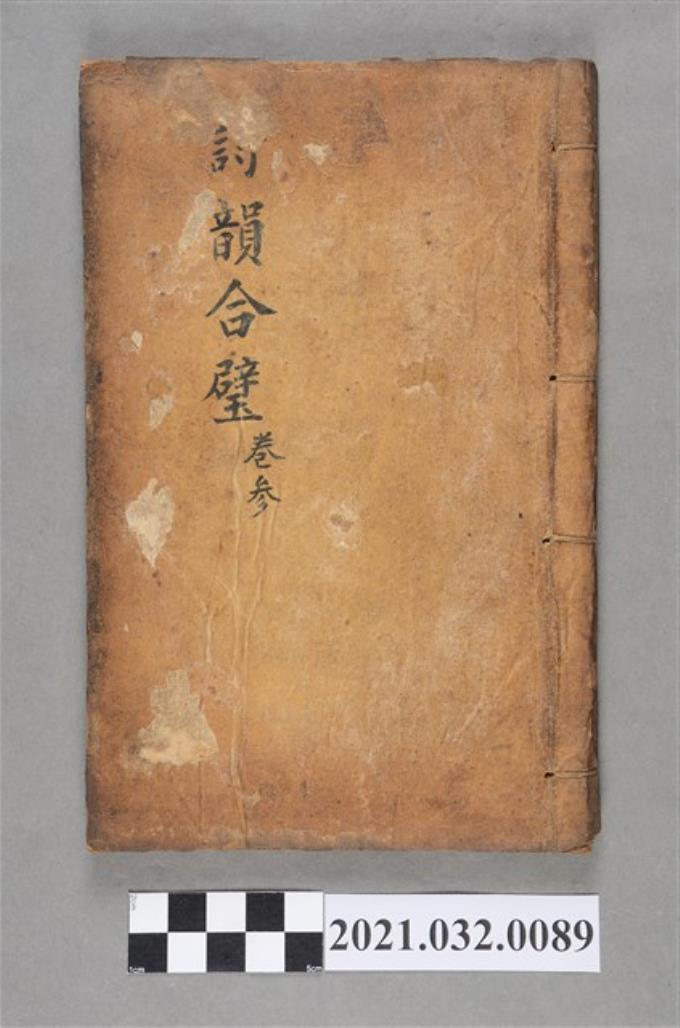 詩韻合璧
卷参
2021.032.0089
1cm
5cm